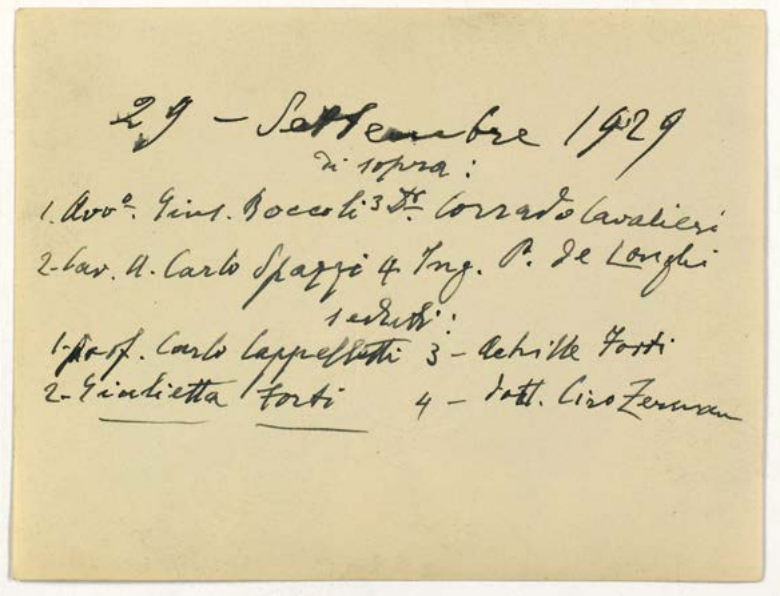 29 - Settembre 1929
di sopra:
1. Avvº. Gius. Boccoli 3 Dr. Corrado Cavalieri
2- Cav. A. Carlo Spazzi 4. Ing. P. de Longhi
seduti:
1- prof. Carlo Cappelletti 3 - Achille Forti
2- Giulietta Forti 4 - dott. Ciro Zerman